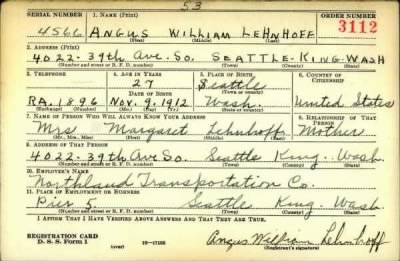 53
SERIAL NUMBER 1. NAME (Print) ORDER NUMBER
4566 ANGUS WILLIAM LEHNHOFF 3112
(First) (Middle) (Last)
2. ADDRESS (Print)
4022-39th Ave. So. SEATTLE-KING-WASH
(Number and street or R. F. D. number) (Town) (County) (State)
3. TELEPHONE 4. AGE IN YEARS 5. PLACE OF BIRTH 6. COUNTRY OF CITIZENSHIP
27 Seattle
DATE OF BIRTH (Town or county)
RA. 1896 Nov. 9. 1912 Wash. United States
(Exchange) (Number) (Mo.) (Day) (Yr.) (State or country)
7. NAME OF PERSON WHO WILL ALWAYS KNOW YOUR ADDRESS 8. RELATIONSHIP OF THAT PERSON
Mrs Margaret Lehnhoff Mother
(Mr., Mrs., Miss) (First) (Middle) (Last)
9. ADDRESS OF THAT PERSON
4022-39th Ave So. Seattle King. Wash.
(Number and street or R. F. D. number) (Town) (County) (State)
10. EMPLOYER'S NAME
Northland Transportation Co.
11. PLACE OF EMPLOYMENT OR BUSINESS
Pier 5. Seattle King. Wash.
(Number and street or R. F. D. number) (Town) (County) (State)
I AFFIRM THAT I HAVE VERIFIED ABOVE ANSWERS AND THAT THEY ARE TRUE.
REGISTRATION CARD
D. S. S. Form 1 (over) 16—17105 Angus William Lehnhoff
(Registrant's signature)